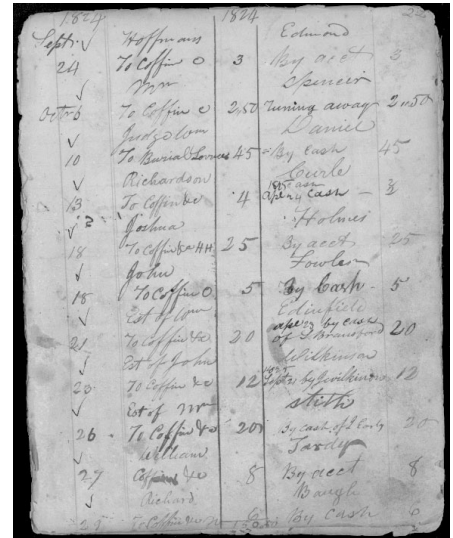 1824 1824
Hoffman Edmond
Septr 24 To Coffin C 3 By acct 3
Mr Spencer
Octr 6 To Coffin C 2,50 Runing away 2,50
Daniel
10 To Burial 45 By Cash 45
Richardson Curle
13 To Coffin &c 4 Cash
Joshua Holmes
18 To Coffin &c HH 25 By acct 25
John Fowler
18 To Coffin C 5 By Cash 5
Est of Wm
21 To Coffin &c 20 apl 23 by cash of Bransford 20
Est of John Wilkinson
23 To Coffin &c 12 Sept 21 by Wilkinson 12
Est of Mr Stith
26 To Coffin &c 20 By cash of Early 20
William Tardy
27 Coffin &c 8 By acct 8
Richard Baugh
To Coffin &c 6 By Cash 6